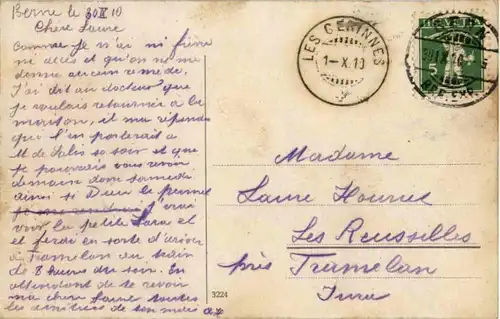 Berne le 30 IX 10
Chère Laure
Comme je n'ai ni fièvre
ni accès et qu'on ne me
donne aucun remède.
J'ai dit au docteur que
je voulais retourner à la
maison, il m'a répondu
qu'il en parlerait à
M de ce soir et que
je pourrais vous revoir
demain dans
ainsi si Dieu le permet
j'irai
voir la petite Sara et
et ferai en sorte d'arriver
à Tramelan au train
de 8 heures du soir. En
attendant de te revoir
ma chère Laure toutes
les amitiés de ton
LES GENINNES
1-X.10
5
Madame
Laure Houriet
Les Reussilles
près Tramelan
Jura
3224